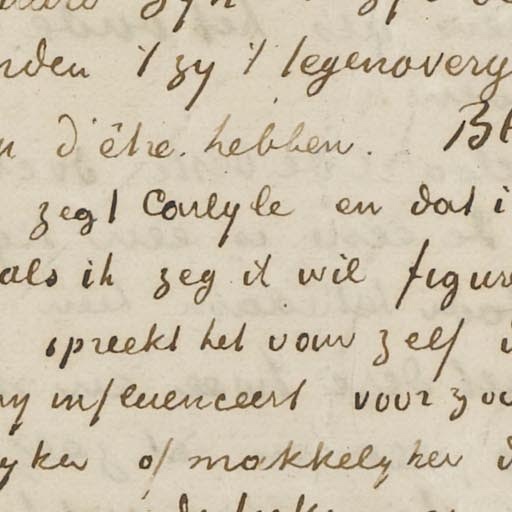 nden 't zy 't tegenoverg
n d'être hebben. Bl
zegt Carlyle en dat i
als ik zeg ik wil figur
spreekt het van zelf d
my influenceert voor zoo
yker of makkelyker d